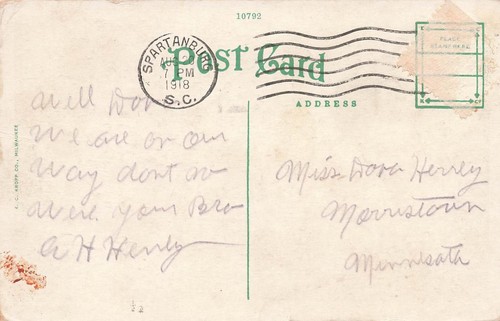 10792
Post Card
SPARTANBURG
AUG
7 PM
1918
S.C.
PLACE
STAMP HERE
ADDRESS
Well Dora
We are on our
way dont no
were your Bro
A H Henry
Miss Dora Henry
Morristown
Minnesota
E. C. KROPP CO., MILWAUKEE